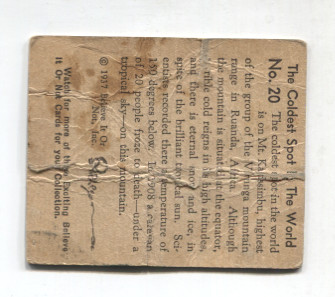 The Coldest Spot In The World
No. 20 The coldest spot in the world
is on Mt. Karisimbi, highest
of the group of the Virunga mountain
range in Ruanda, Africa. Although
the mountain is situated at the equator,
terrible cold reigns in its high altitudes,
and there is eternal snow and ice, in
spite of the brilliant tropical sun. Sci-
entists recorded there a temperature of
150 degrees below. In 1908 a caravan
of 20 people froze to death—under a
tropical sky—on this mountain.
© 1937 Believe It Or
Not, Inc. Ripley
Watch for more of the exciting Believe
It Or Not Cards for your Collection.